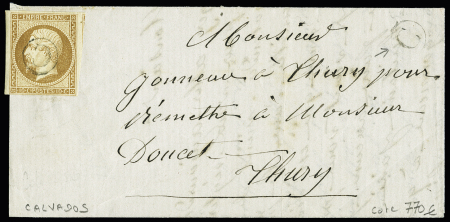 EMPIRE FRANC.
Monsieur
Gonneau à Thury pour
remettre à Monsieur
Doucet
Thury
CALVADOS
Cote 770€